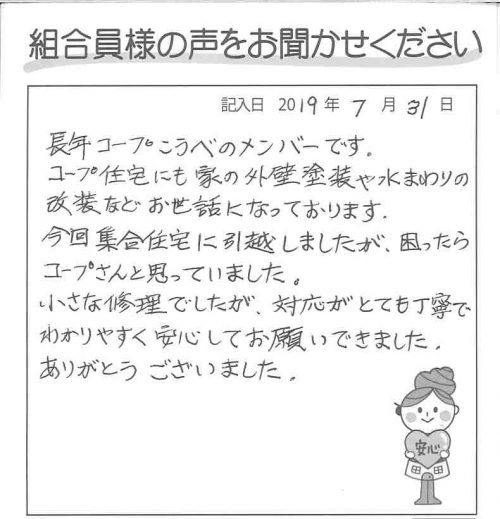 組合員様の声をお聞かせください
記入日 2019年 7月 31日
長年コープこうべのメンバーです。
コープ住宅にも家の外壁塗装や水まわりの
改装などお世話になっております.
今回集合住宅に引越しましたが、困ったら
コープさんと思っていました。
小さな修理でしたが、対応がとても丁寧で
わかりやすく安心してお願いできました.
ありがとうございました.
安心